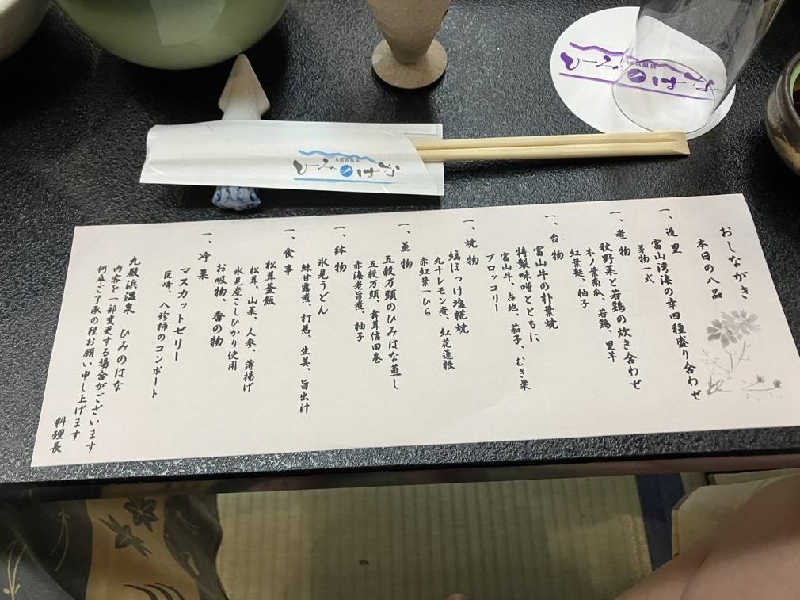 おしながき
本日の八品
一、造里
富山湾湊の幸四種盛り合わせ
芽物一式
一、煮物
秋野菜と若鶏の炊き合わせ
木ノ葉南瓜、若鶏、里芋
紅葉麩、柚子
一、台物
富山牛の朴葉焼
特製味噌とともに
富山牛、占地、茄子、むき栗
ブロッコリー
一、焼物
縞ほっけ塩糀焼
丸十レモン煮、紅花蓮根
赤紅葉一ひら
一、蒸物
五穀万頭のひみはな蒸し
五穀万頭、舞茸信田巻
赤海老旨煮、柚子
一、鉢物
氷見うどん
鰊甘露煮、打葱、生姜、旨出汁
一、食事
松茸釜飯
松茸、山菜、人参、薄揚げ
氷見産こしひかり使用
お吸物、香の物
一、冷菓
マスカットゼリー
巨峰、八珍柿のコンポート
九殿浜温泉 ひみのはな
内容を一部変更する場合がございます
何卒ご了承の程お願い申し上げます
料理長